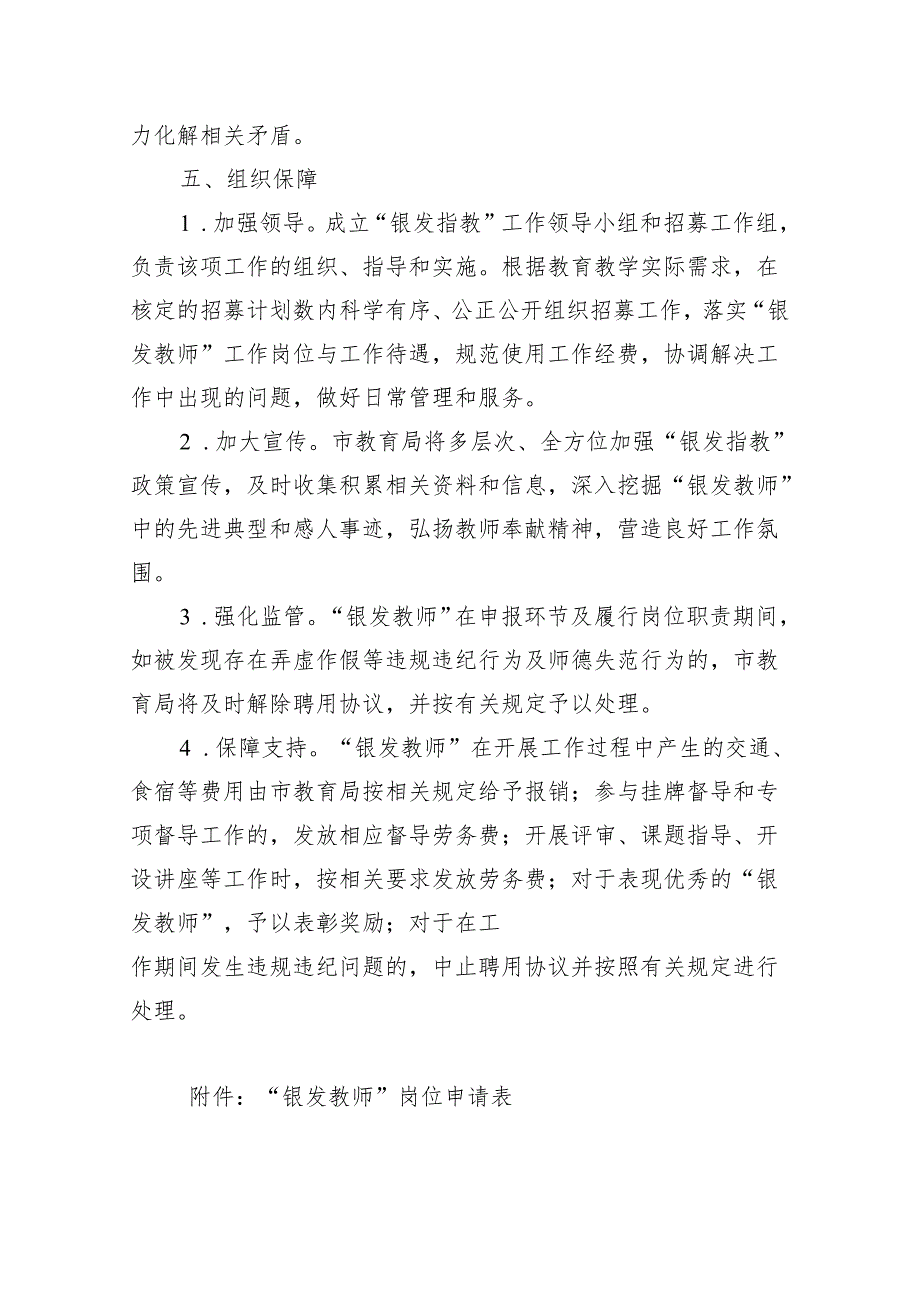 力化解相关矛盾。
五、组织保障
1 .加强领导。成立“银发指教”工作领导小组和招募工作组，
负责该项工作的组织、指导和实施。根据教育教学实际需求，在
核定的招募计划数内科学有序、公正公开组织招募工作，落实“银
发教师”工作岗位与工作待遇，规范使用工作经费，协调解决工
作中出现的问题，做好日常管理和服务。
2 .加大宣传。市教育局将多层次、全方位加强“银发指教”
政策宣传，及时收集积累相关资料和信息，深入挖掘“银发教师”
中的先进典型和感人事迹，弘扬教师奉献精神，营造良好工作氛
围。
3 .强化监管。“银发教师”在申报环节及履行岗位职责期间，
如被发现存在弄虚作假等违规违纪行为及师德失范行为的，市教
育局将及时解除聘用协议，并按有关规定予以处理。
4 .保障支持。“银发教师”在开展工作过程中产生的交通、
食宿等费用由市教育局按相关规定给予报销；参与挂牌督导和专
项督导工作的，发放相应督导劳务费；开展评审、课题指导、开
设讲座等工作时，按相关要求发放劳务费；对于表现优秀的“银
发教师”，予以表彰奖励；对于在工
作期间发生违规违纪问题的，中止聘用协议并按照有关规定进行
处理。
附件：“银发教师”岗位申请表